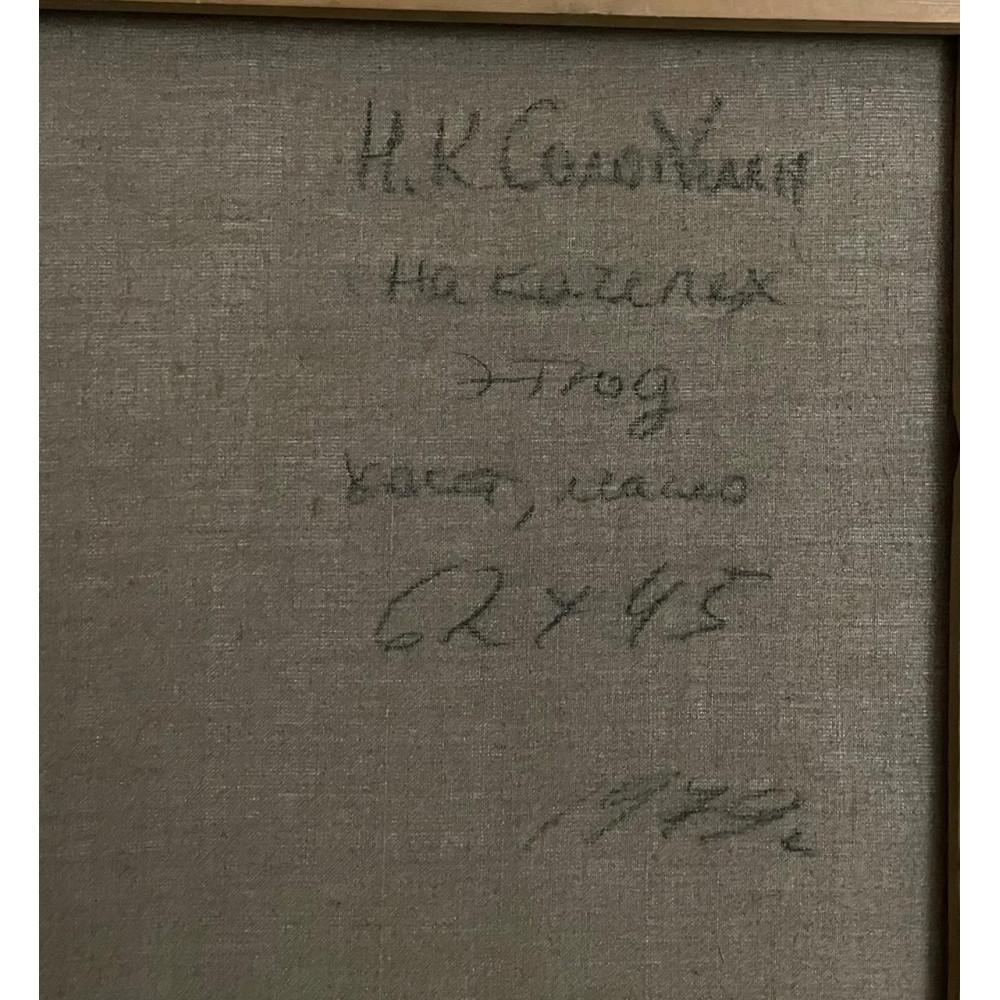 Н.К Соломин
На качелях
Этюд
холст, масло
62 х 45
1979г